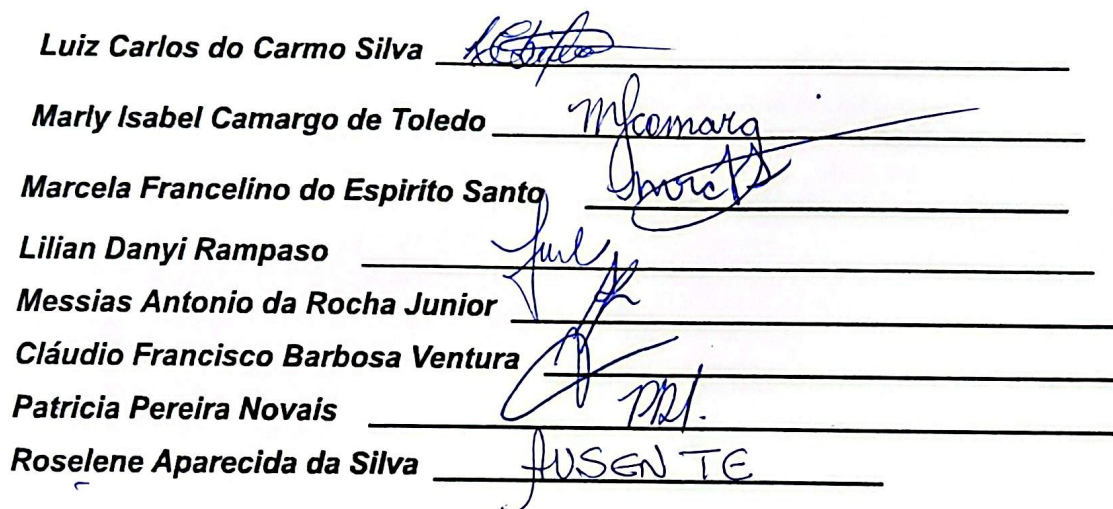 Luiz Carlos do Carmo Silva
Marly Isabel Camargo de Toledo
Marcela Francelino do Espirito Santo
Lilian Danyi Rampaso
Messias Antonio da Rocha Junior
Cláudio Francisco Barbosa Ventura
Patricia Pereira Novais
Roselene Aparecida da Silva AUSENTE